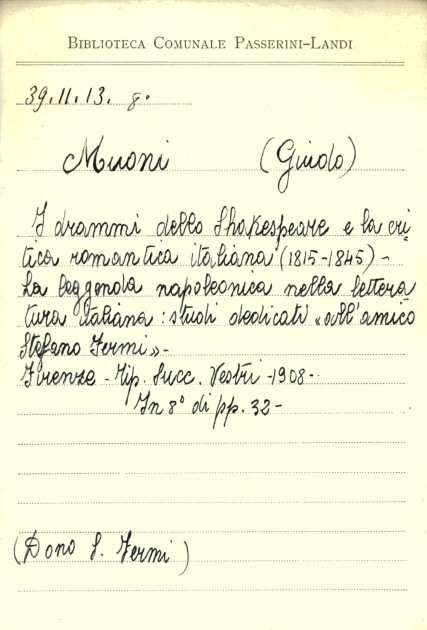 BIBLIOTECA COMUNALE PASSERINI-LANDI
39.II.13. 8.
Muoni (Guido)
I drammi dello Shakespeare e la cri
tica romantica italiana (1815-1845) -
La leggenda napoleonica nella lettera
tura italiana : studi dedicati «all'amico
Stefano Fermi» -
Firenze - Tip. Succ. Vestri - 1908 -
In 8° di pp. 32 -
(Dono S. Fermi)